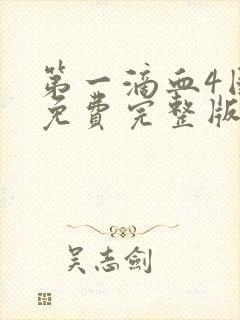 第一滴血4国
免费完整版
吴志剑